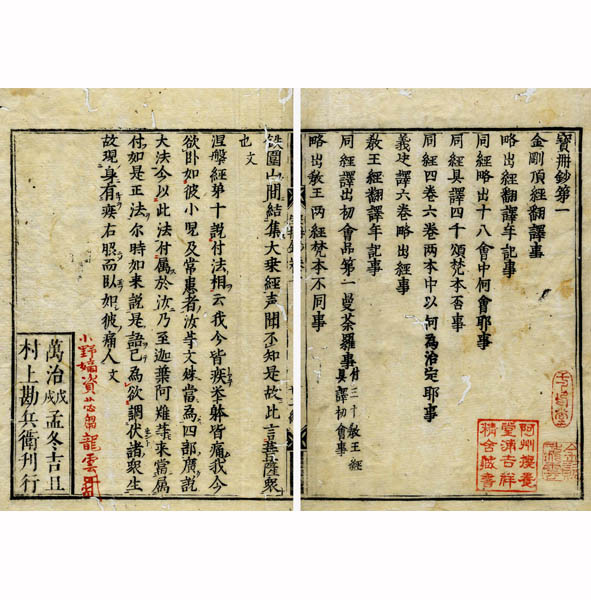 寶冊鈔第一
金剛頂經翻譯事
略出經翻譯年記事
同經略出十八會中何會耶事
同經具譯四千頌梵本否事
同經四卷六卷兩本中以何為治定耶事
義決譯六卷略出經事
教王經翻譯年記事
同經譯出初會品第一曼荼羅事 付三十教王經具譯初會事
略出教王兩經梵本不同事
阿州撫養
堂浦吉祥
精舍蔵書
鐵圍山間結集大乗經声聞不知是故此言菩薩衆
也文
涅槃經第十説付法相云我今皆疾挙躰皆痛我今
欲卧如彼小児及常患者汝等文殊當為四部廣説
大法今以此法付属於汝乃至迦葉阿難等来當属
付如是正法尔時如来説是語已為欲調伏諸衆生
故現身有疾右脇而臥如彼痛人文
龍雲
萬治戊戌孟冬吉旦
村上勘兵衛刊行